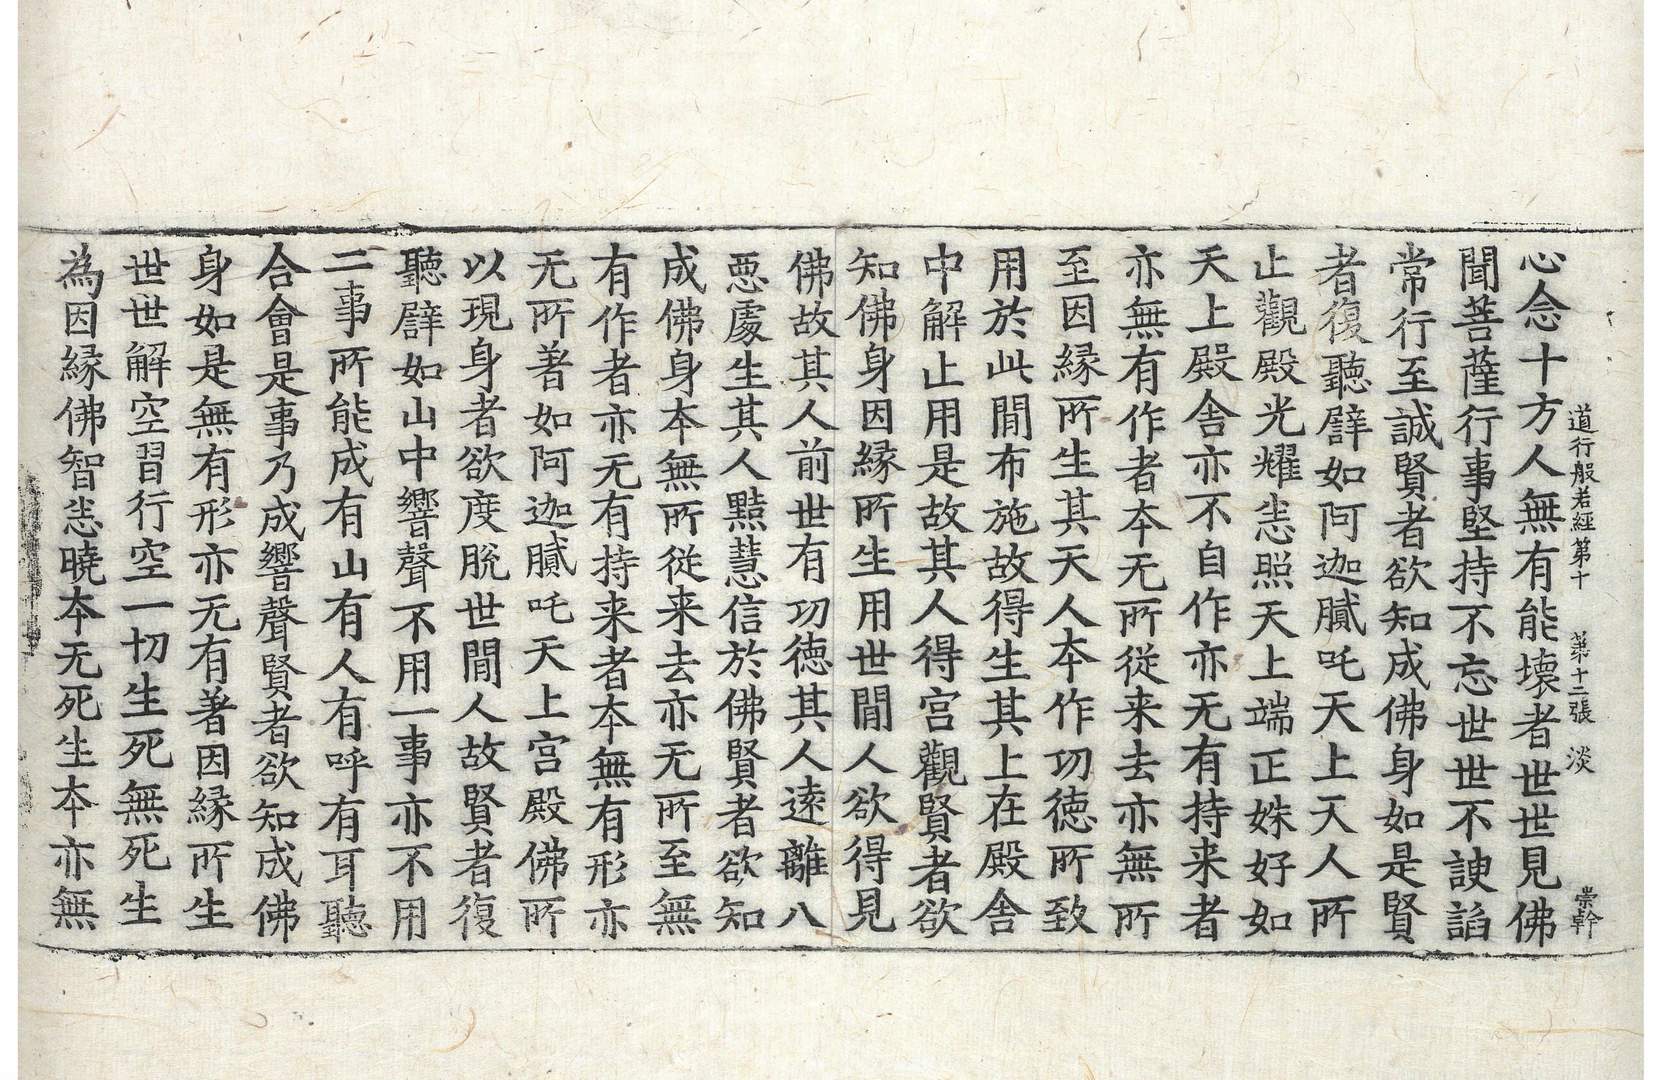 道行般若經第十　第十二張　淡　崇幹
心念十方人無有能壞者世世見佛
聞菩薩行事堅持不忘世世不諛諂
常行至誠賢者欲知成佛身如是賢
者復聽譬如阿迦膩吒天上天人所
止觀殿光耀悉照天上端正姝好如
天上殿舍亦不自作亦无有持来者
亦無有作者本无所從来去亦無所
至因縁所生其天人本作功徳所致
用於此間布施故得生其上在殿舍
中解止用是故其人得宫觀賢者欲
知佛身因縁所生用世間人欲得見
佛故其人前世有功徳其人遠離八
惡處生其人黠慧信於佛賢者欲知
成佛身本無所從来去亦无所至無
有作者亦无有持来者本無有形亦
无所著如阿迦膩吒天上宫殿佛所
以現身者欲度脫世間人故賢者復
聽譬如山中響聲不用一事亦不用
二事所能成有山有人有呼有耳聽
合會是事乃成響聲賢者欲知成佛
身如是無有形亦无有著因縁所生
世世解空習行空一切生死無死生
為因縁佛智悉曉本无死生本亦無